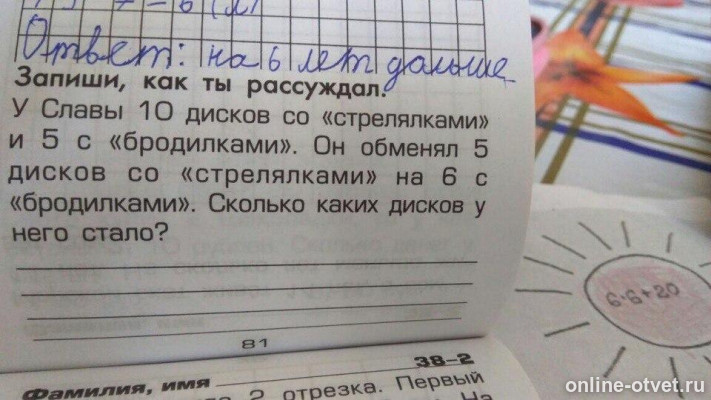 Ответ: на 6 лет дальше
Запиши, как ты рассуждал.
У Славы 10 дисков со «стрелялками»
и 5 с «бродилками». Он обменял 5
дисков со «стрелялками» на 6 с
«бродилками». Сколько каких дисков у
него стало?
6·6+20
81
38-2
Фамилия, имя
2 отрезка. Первый
На
online-otvet.ru